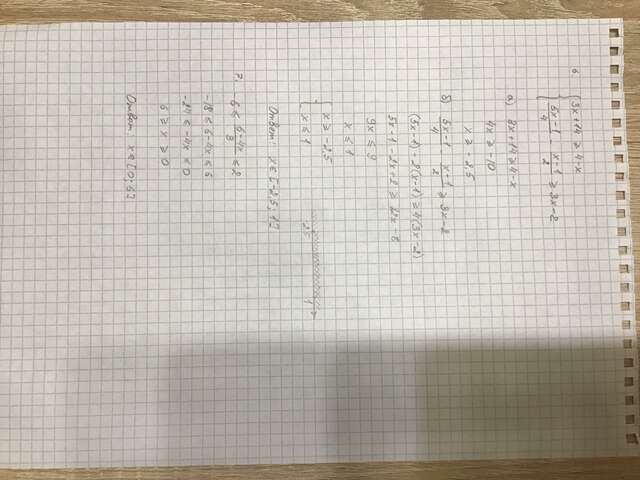 6 { 3x+14 ≥ 4-x
{ 5x-1/4 - x-1/2 ≥ 3x-2
а) 3x+14 ≥ 4-x
4x ≥ -10
x ≥ -2,5
б) 5x-1/4 - x-1/2 ≥ 3x-2
(5x-1)-2(x-1) ≥ 4(3x-2)
5x-1-2x+2 ≥ 12x-8
9x ≤ 9
x ≤ 1
{ x ≥ -2,5
{ x ≤ 1
-2,5 1
Ответ: x ∈ [-2,5; 1]
7. -6 < 6-4x/3 < 2
-18 < 6-4x < 6
-24 < -4x < 0
6 > x > 0
Ответ: x ∈ [0; 6]